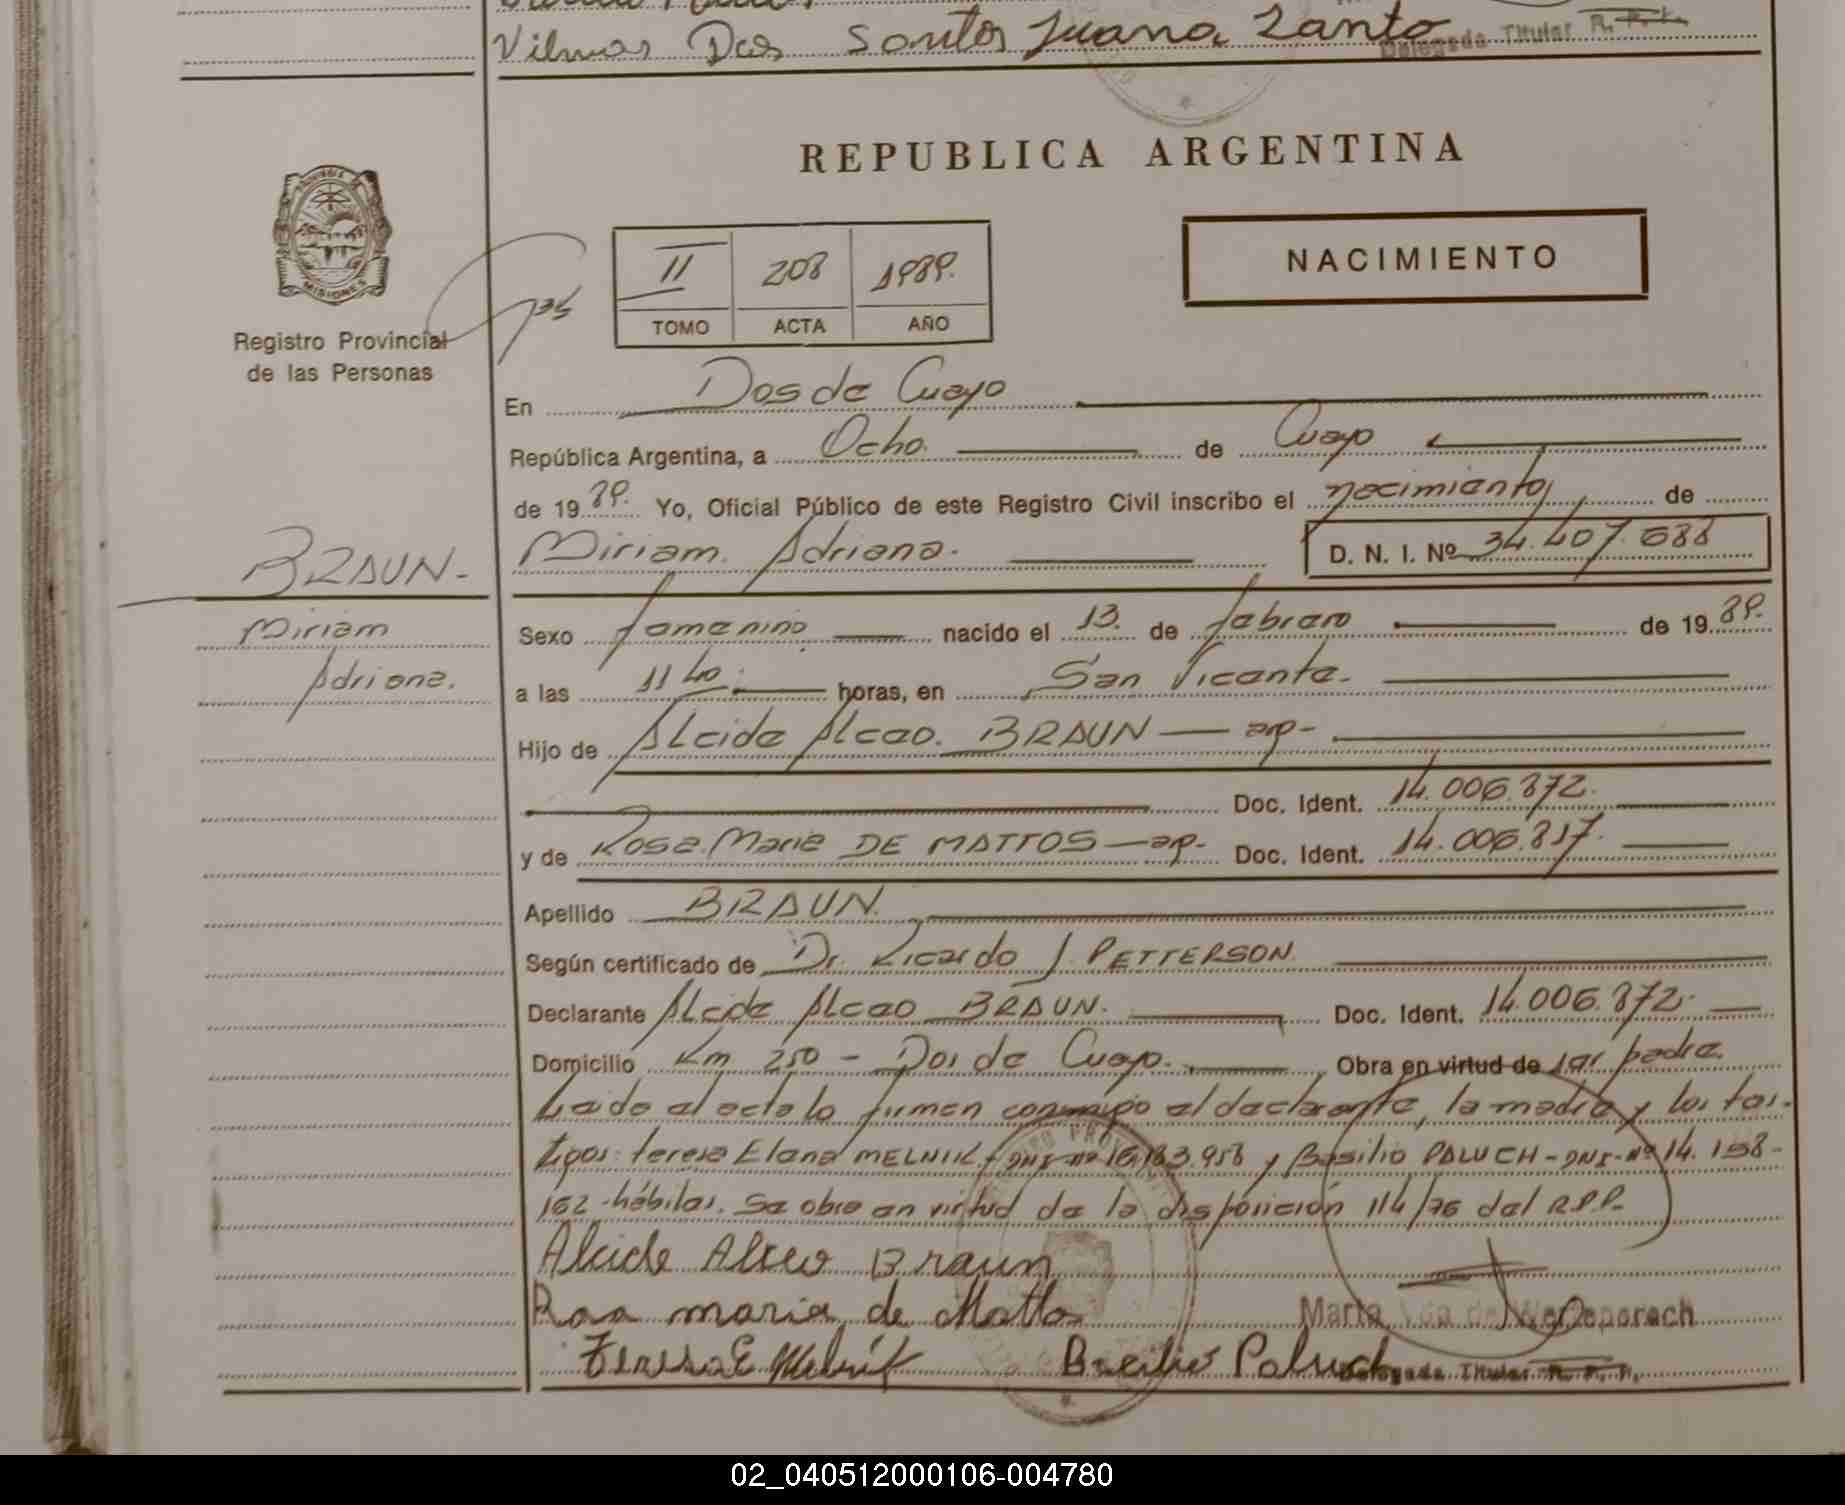 Vilmar Dos Santos Juana Zanto
Delegada Titular R. P. P.
REPUBLICA ARGENTINA
PROVINCIA DE
MISIONES
Registro Provincial
de las Personas
II 208 1989.
TOMO ACTA AÑO
NACIMIENTO
En Dos de Mayo
República Argentina, a Ocho. de Mayo
de 19 89. Yo, Oficial Público de este Registro Civil inscribo el nacimiento, de
Miriam. Adriana. D. N. I. Nº 34.407.688
BRAUN-
Miriam
Adriana.
Sexo femenino nacido el 13. de febrero de 19 89.
a las 11 40. horas, en San Vicente.
Hijo de Alcide Alceo. BRAUN — ap-
Doc. Ident. 14.006.872.
y de Rosa Maria DE MATTOS — ap- Doc. Ident. 14.006.817.
Apellido BRAUN.
Según certificado de Dr. Ricardo J. PETTERSON.
Declarante Alcide Alceo BRAUN. Doc. Ident. 14.006.872.
Domicilio Km 250 - Dos de Mayo. Obra en virtud de ser padre.
Leido el acta lo firman conmigo el declarante, la madre y los tes-
tigos: Teresa Elena MELNIK - DNI-Nº 16.183.958 y Basilio PALUCH - DNI-Nº 14.198-
162 - hábiles. Se obro en virtud de la disposición 114/76 del R.P.P.
Alcide Alceo Braun
Rosa maria de Mattos
Marta Vda de
Teresa E Melnik Basilio Paluch
Delegada Titular R. P. P.
02_040512000106-004780